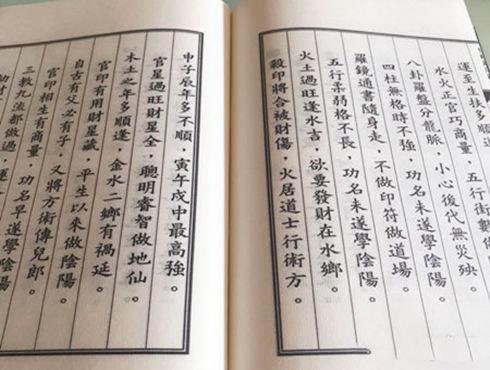 運至生扶多順
水火正官巧商量，五行術數
八卦羅盤分龍脈，小心後代無災殃。
四柱無格時不強，功名未遂學陰陽
羅鏡通書隨身走，不做印符做道場。
五行柔弱格不長，功名未遂學陰陽。
火土過旺逢水吉，欲要發財在水鄉。
殺印將合被財傷，火居道士行術方。
申子辰年多不順，寅午戌中最高強。
官星過旺財星全，聰明睿智做地仙。
木土之年多順逢，金水二鄉有禍延。
官印有用財星藏，平生以來做陰陽。
自古有父必有子，又將方術傳兒郎。
官印相生有商量，功名早遂學陰陽。
三教九流都做過，運